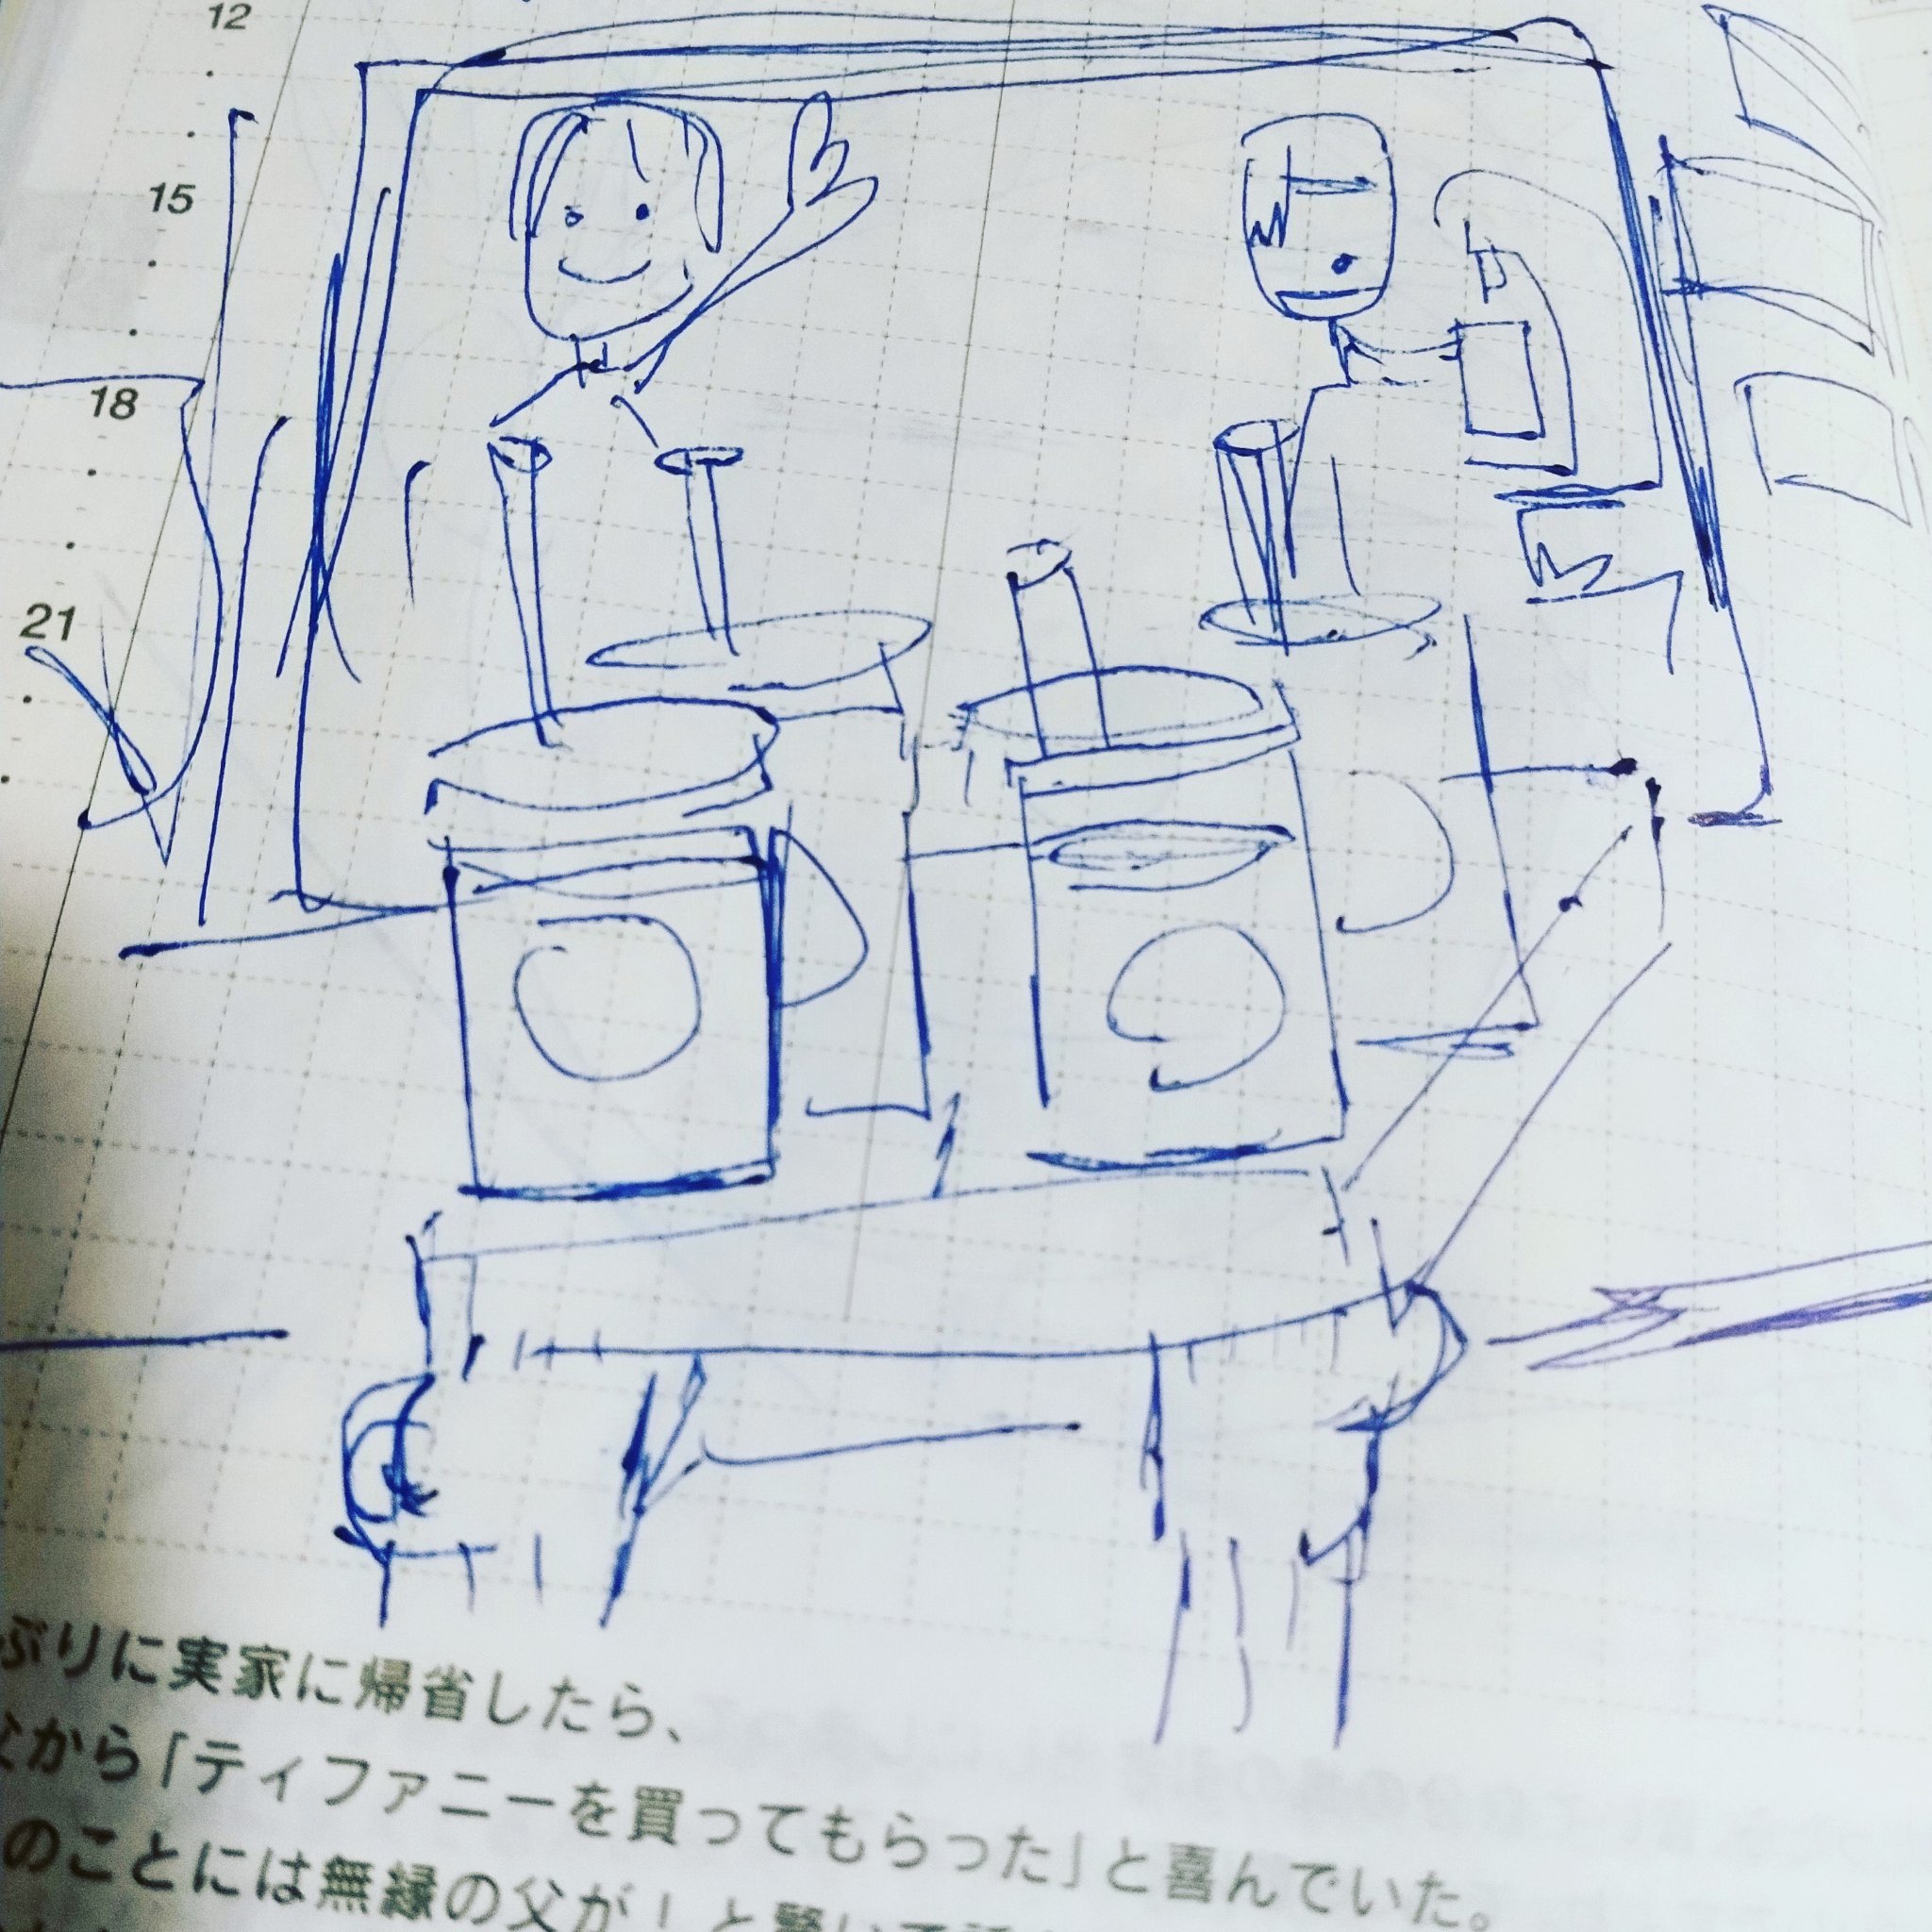 12
15
18
21
ぶりに実家に帰省したら、
父から「ティファニーを買ってもらった」と喜んでいた。
のことには無縁の父が!と驚いて